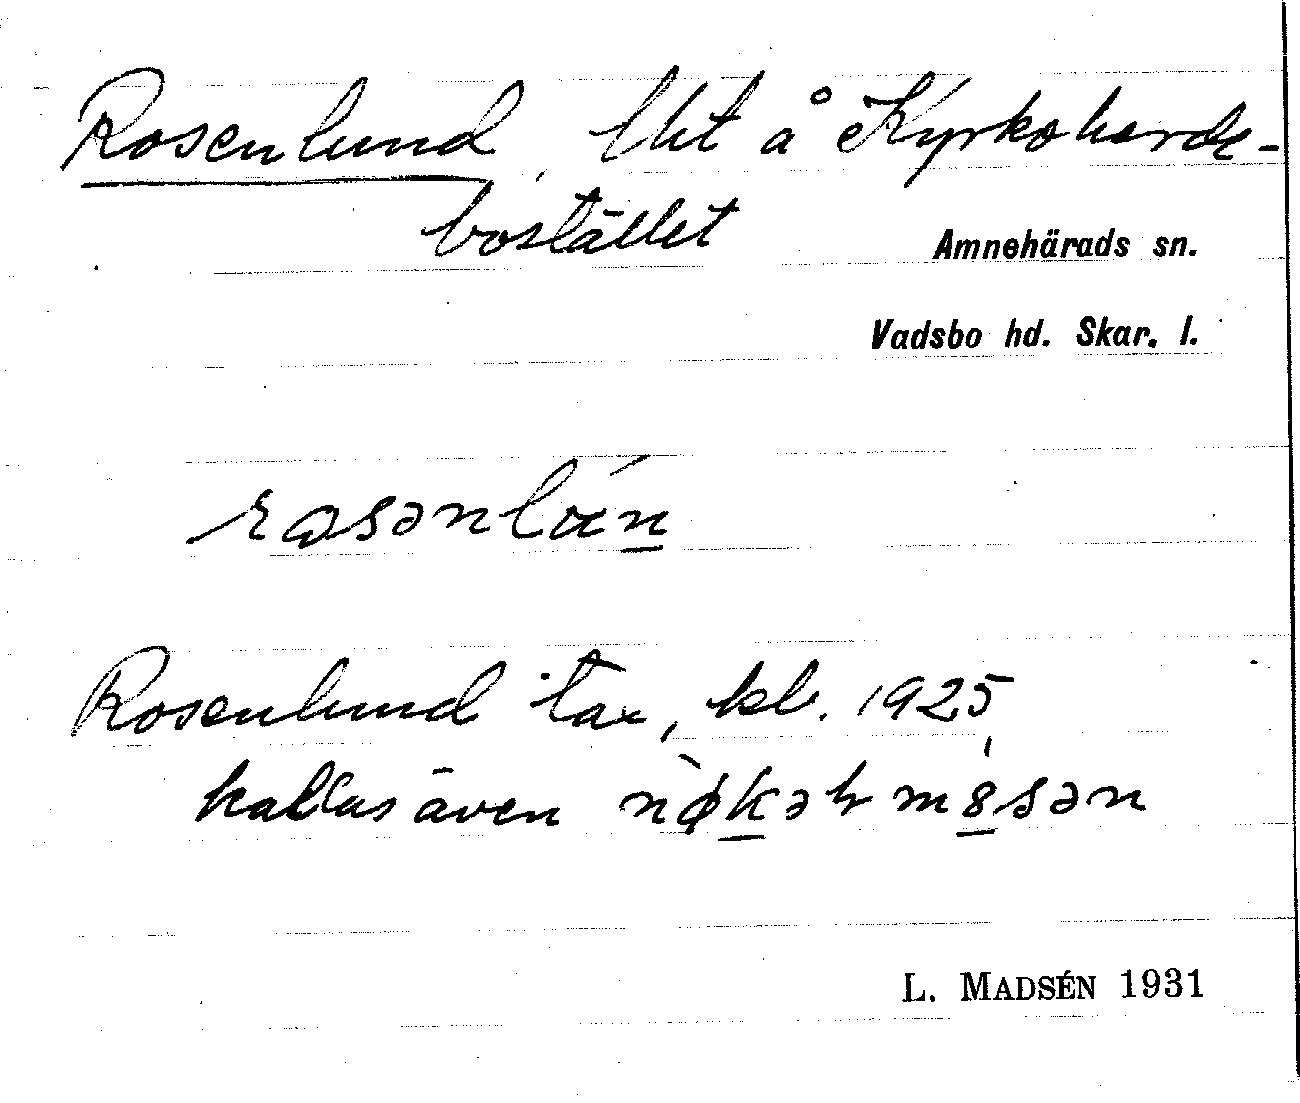 Rosenlund, lht å Kyrkoherde-
bostället
Amnehärads sn.
Vadsbo hd. Skar. l.
rosənlɷ́n
Rosenlund tax, kb. 1925,
kallas även nø̀kəɦm8́sən
L. MADSÉN 1931